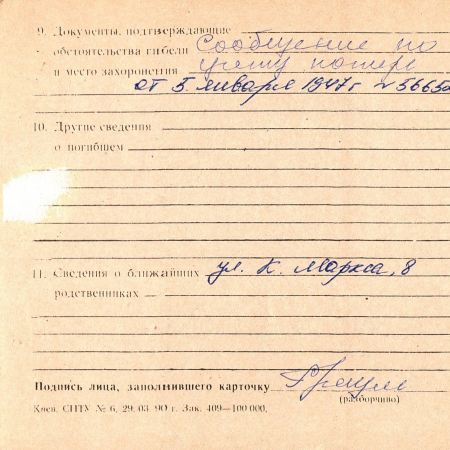 9. Документы, подтверждающие
обстоятельства гибели Сообщение по
и место захоронения учету потерь
от 5 января 1947 г N 5665
10. Другие сведения
о погибшем
11. Сведения о ближайших ул. К. Маркса, 8
родственниках
Подпись лица, заполнившего карточку
(разборчиво)
Киев. СПТУ № 6. 29. 03. 90 г. Зак. 409—100 000.